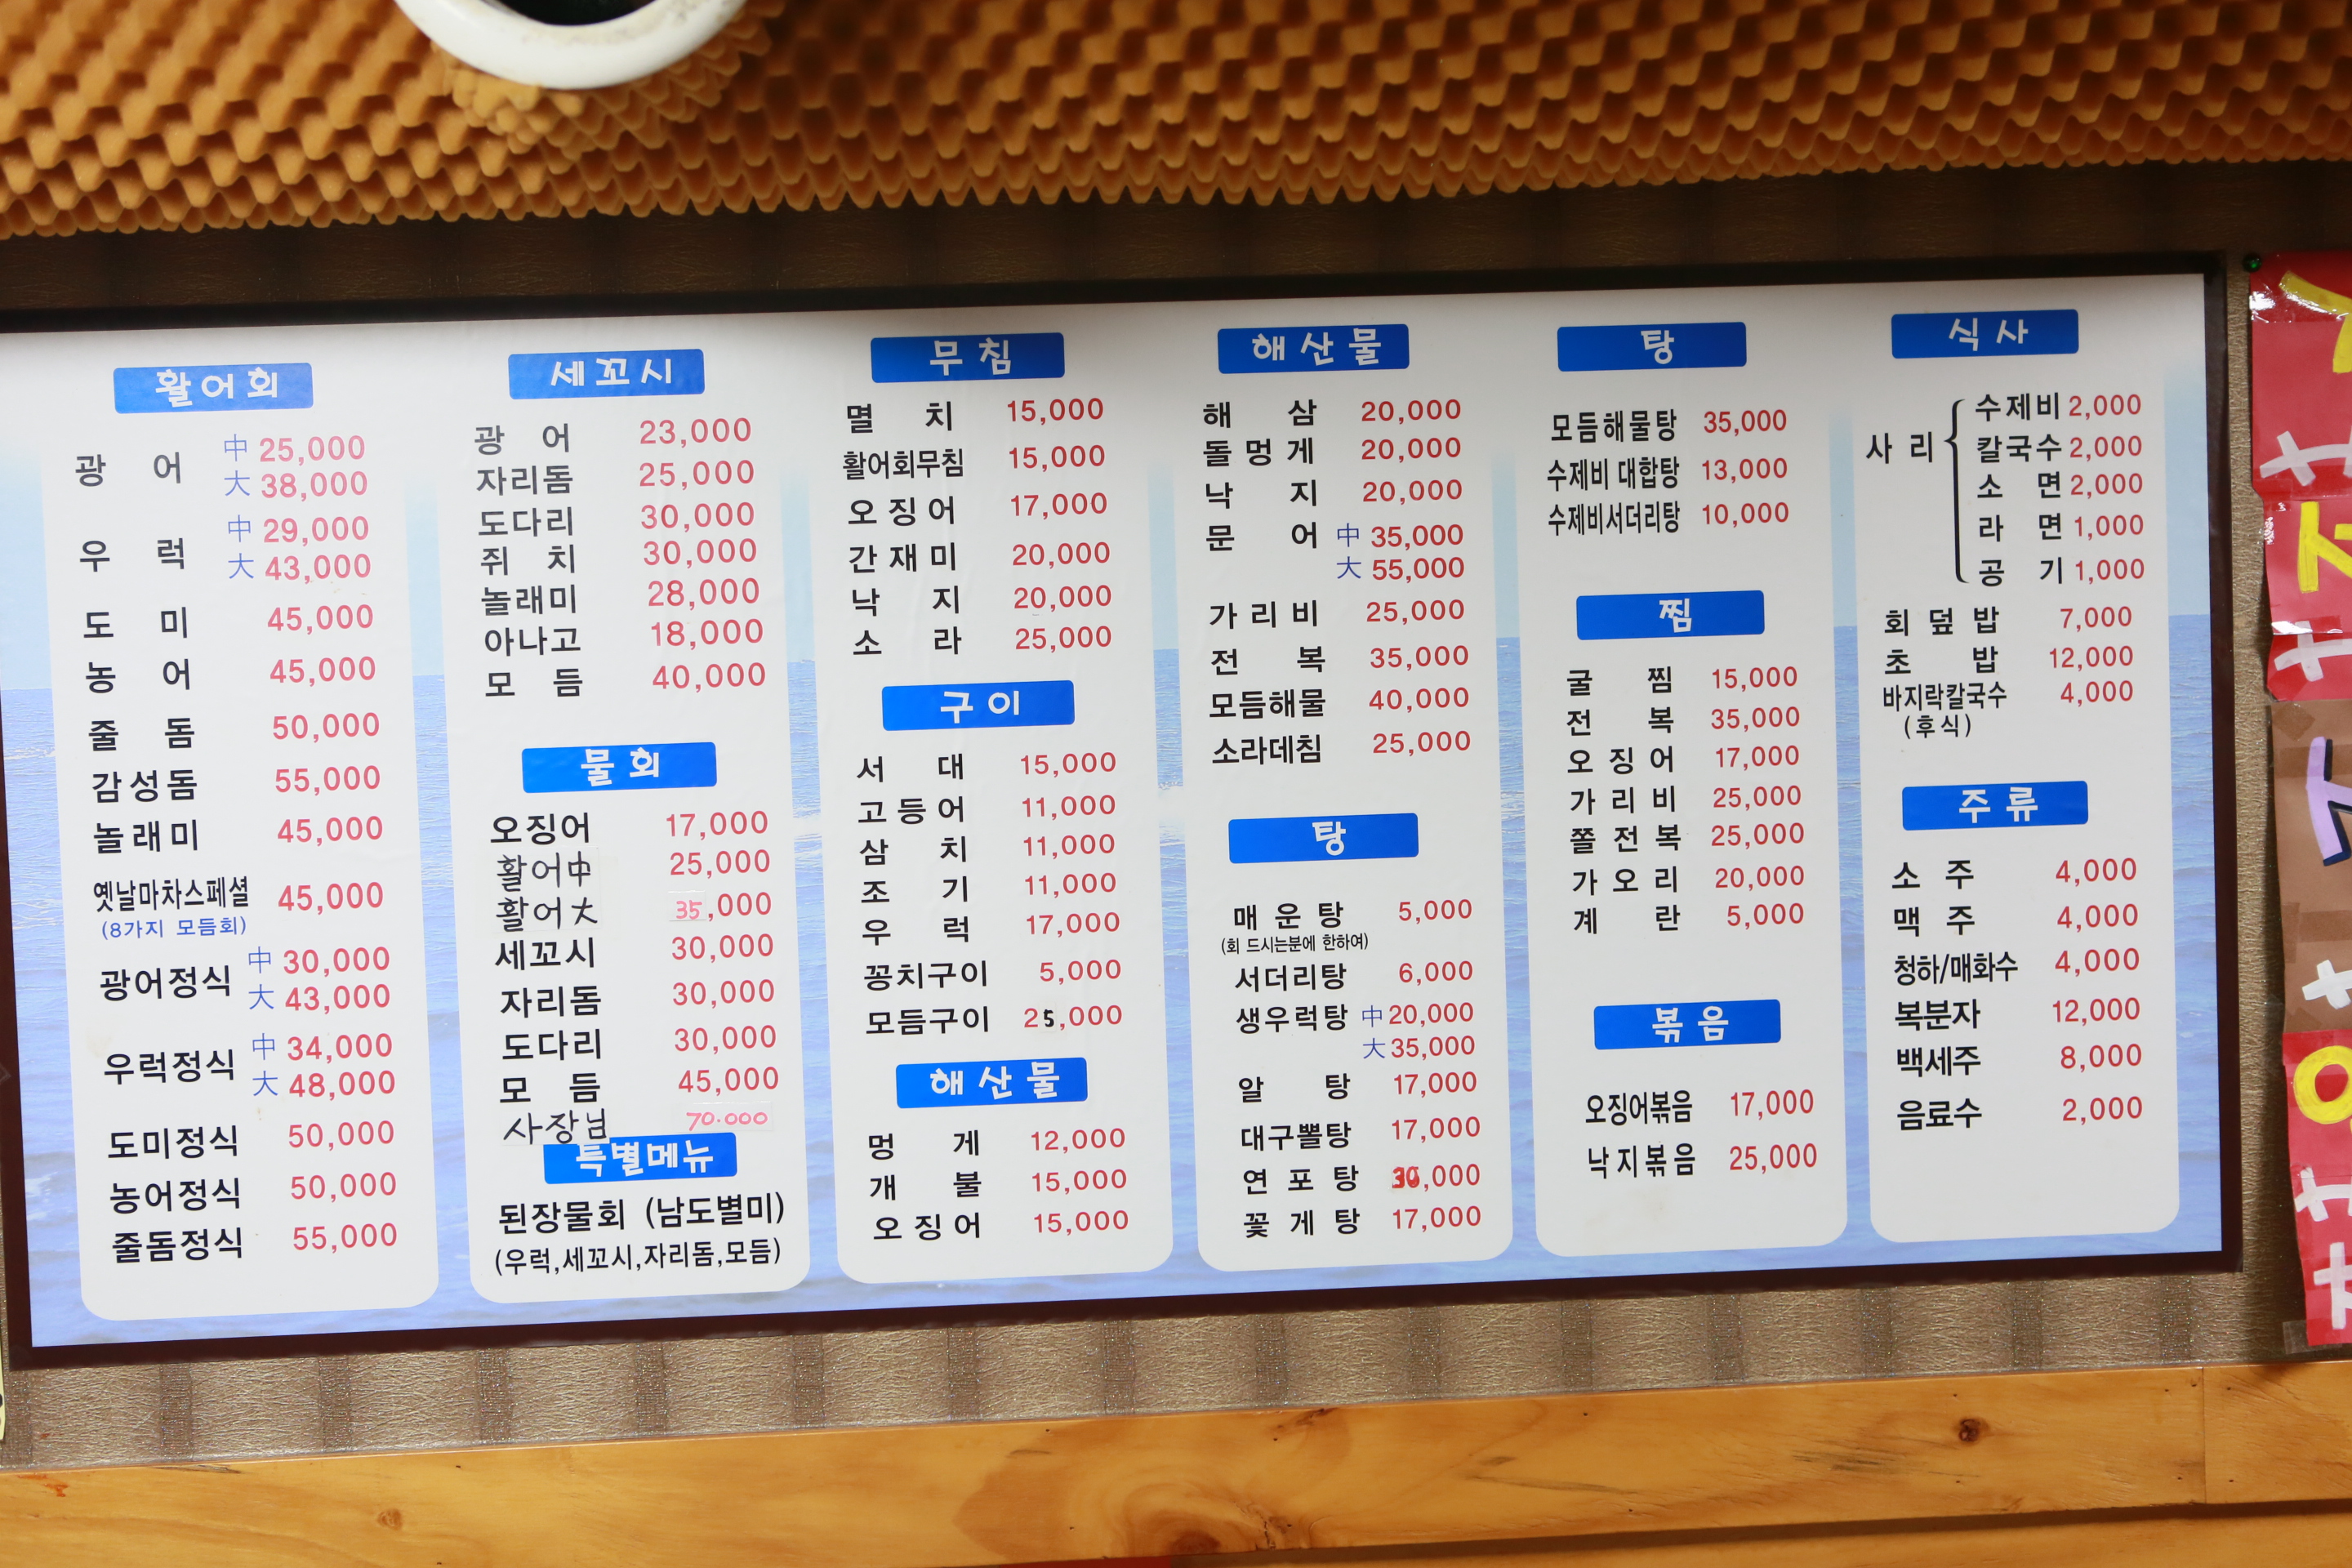 활어회
광어 中 25,000
大 38,000
우럭 中 29,000
大 43,000
도미 45,000
농어 45,000
줄돔 50,000
감성돔 55,000
놀래미 45,000
옛날마차스페셜 45,000
(8가지 모듬회)
광어정식 中 30,000
大 43,000
우럭정식 中 34,000
大 48,000
도미정식 50,000
농어정식 50,000
줄돔정식 55,000
세꼬시
광어 23,000
자리돔 25,000
도다리 30,000
쥐치 30,000
놀래미 28,000
아나고 18,000
모듬 40,000
물회
오징어 17,000
활어中 25,000
활어大 35,000
세꼬시 30,000
자리돔 30,000
도다리 30,000
모듬 45,000
사장님 70.000
특별메뉴
된장물회 (남도별미)
(우럭,세꼬시,자리돔,모듬)
무침
멸치 15,000
활어회무침 15,000
오징어 17,000
간재미 20,000
낙지 20,000
소라 25,000
구이
서대 15,000
고등어 11,000
삼치 11,000
조기 11,000
우럭 17,000
꽁치구이 5,000
모듬구이 25,000
해산물
멍게 12,000
개불 15,000
오징어 15,000
해산물
해삼 20,000
돌멍게 20,000
낙지 20,000
문어 中 35,000
大 55,000
가리비 25,000
전복 35,000
모듬해물 40,000
소라데침 25,000
탕
매운탕 5,000
(회 드시는분에 한하여)
서더리탕 6,000
생우럭탕 中 20,000
大 35,000
알탕 17,000
대구뽈탕 17,000
연포탕
꽃게탕 17,000
탕
모듬해물탕 35,000
수제비 대합탕 13,000
수제비서더리탕 10,000
찜
굴찜 15,000
전복 35,000
오징어 17,000
가리비 25,000
쫄전복 25,000
가오리 20,000
계란 5,000
볶음
오징어볶음 17,000
낙지볶음 25,000
식사
사리 수제비 2,000
칼국수 2,000
소면 2,000
라면 1,000
공기 1,000
회덮밥 7,000
초밥 12,000
바지락칼국수 4,000
(후식)
주류
소주 4,000
맥주 4,000
청하/매화수 4,000
복분자 12,000
백세주 8,000
음료수 2,000